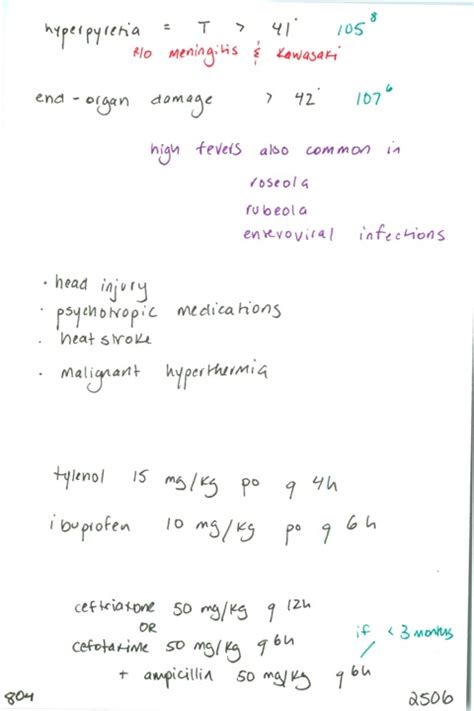 hyperpyrexia = T > 41° 105⁸
R/O Meningitis & Kawasaki
end-organ damage > 42° 107⁶
high fevers also common in
roseola
rubeola
enteroviral infections
· head injury
· psychotropic medications
· heat stroke
· malignant hyperthermia
tylenol 15 mg/kg po q 4h
ibuprofen 10 mg/kg po q 6h
ceftriaxone 50 mg/kg q 12h
OR
cefotaxime 50 mg/kg q 6h if < 3 months
+ ampicillin 50 mg/kg q 6h
804 2506